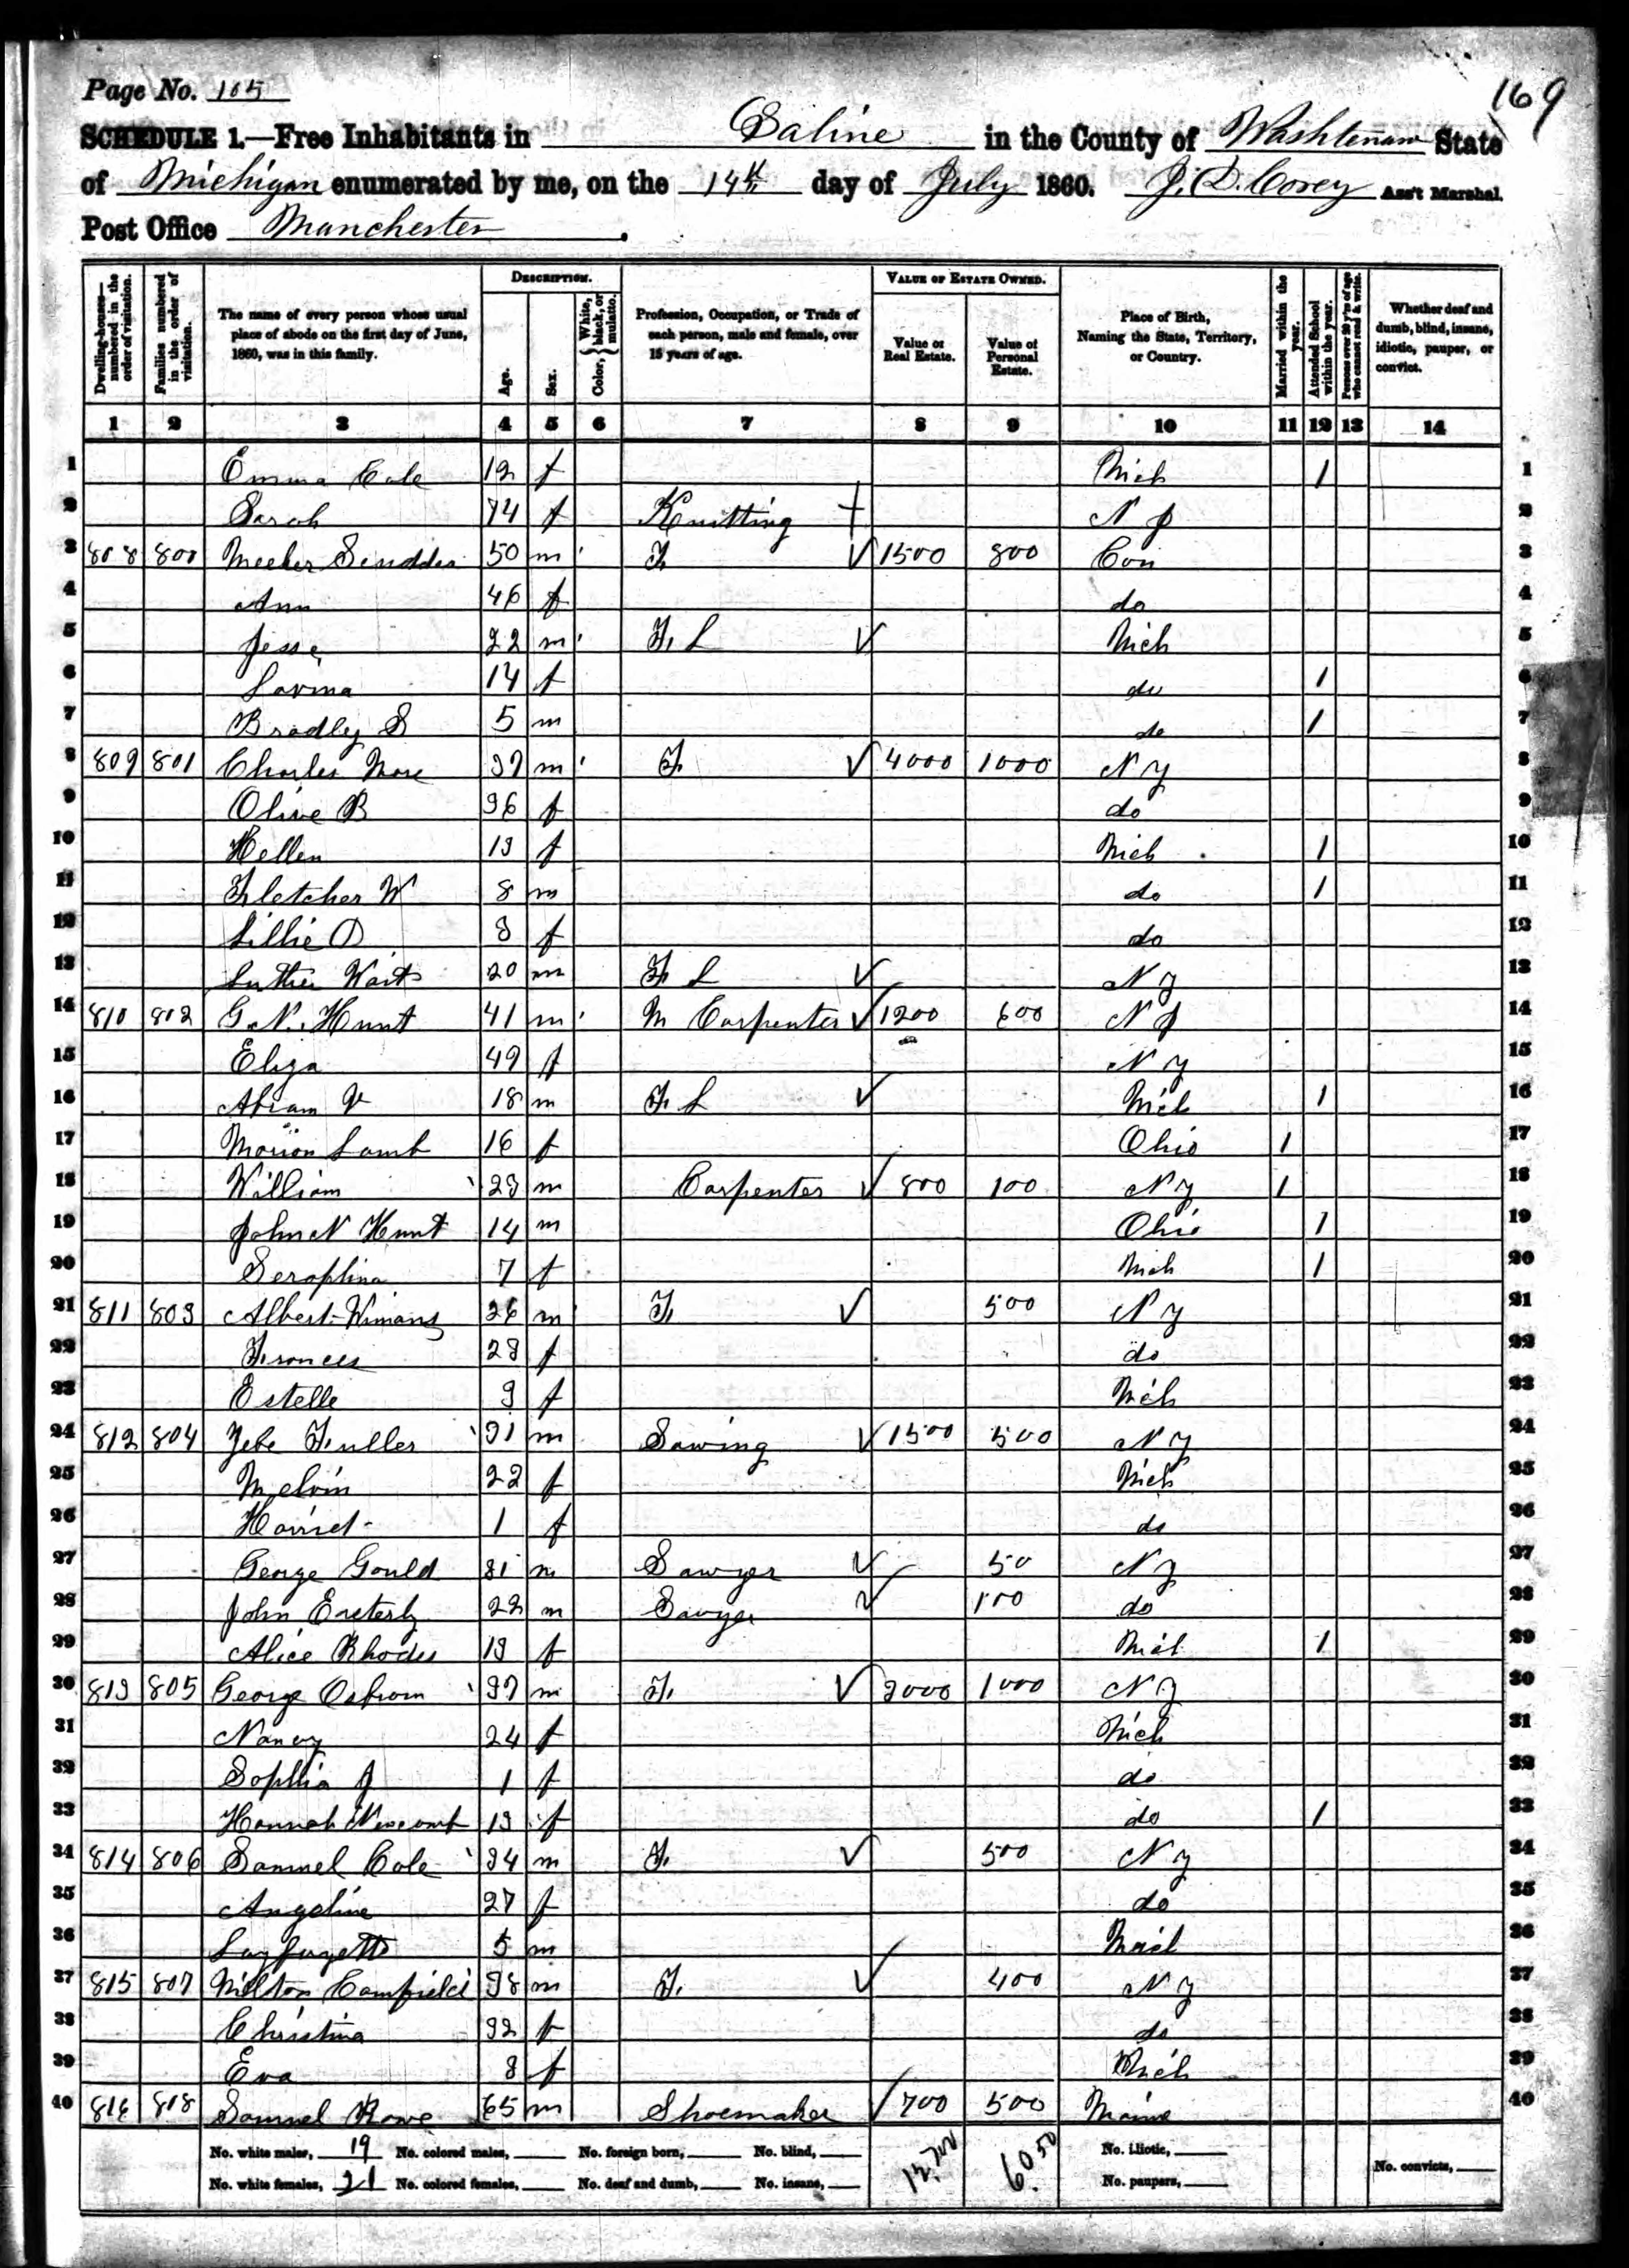 Page No. 105
169
SCHEDULE 1.—Free Inhabitants in Saline in the County of Washtenaw State
of Michigan enumerated by me, on the 14th day of July 1860. J. D. Corey Ass't Marshal.
Post Office Manchester.
Dwelling-houses—numbered in the order of visitation.
Families numbered in the order of visitation.
The name of every person whose usual place of abode on the first day of June, 1860, was in this family.
DESCRIPTION.
Age.
Sex.
Color, { White, black, or mulatto.
Profession, Occupation, or Trade of each person, male and female, over 15 years of age.
VALUE OF ESTATE OWNED.
Value of Real Estate.
Value of Personal Estate.
Place of Birth, Naming the State, Territory, or Country.
Married within the year.
Attended School within the year.
Persons over 20 y'rs of age who cannot read & write.
Whether deaf and dumb, blind, insane, idiotic, pauper, or convict.
1 2 3 4 5 6 7 8 9 10 11 12 13 14
1 Emma Cole 12 f Mich 1 1
2 Sarah 74 f Knitting + N J 2
3 808 800 Meeker 50 m F ✓ 1500 800 Con 3
4 Ann 46 f do 4
5 Jesse 22 m F. L ✓ Mich 5
6 Lovina 14 f do 1 6
7 Bradley S 5 m do 1 7
8 809 801 Charles More 37 m F. ✓ 4000 1000 N Y 8
9 Olive B 36 f do 9
10 Hellen 13 f Mich 1 10
11 Fletcher W 8 m do 1 11
12 Lillie D 3 f do 12
13 Luther Waits 20 m F L ✓ N Y 13
14 810 802 G. N. Hunt 41 m M Carpenter ✓ 1200 600 N J 14
15 Eliza 49 f N Y 15
16 Abram 18 m F L ✓ Mich 1 16
17 Marion Lamb 16 f Ohio 1 17
18 William 23 m Carpenter ✓ 800 100 N Y 1 18
19 John N Hunt 14 m Ohio 1 19
20 Seraphina 7 f Mich 1 20
21 811 803 Albert Wimans 26 m F. ✓ 500 N Y 21
22 Frances 23 f do 22
23 Estelle 3 f Mich 23
24 812 804 Zebe Fuller 31 m Sawing ✓ 1500 500 N Y 24
25 Melvin 22 f Mich 25
26 Harriet 1 f do 26
27 George Gould 31 m Sawyer ✓ 50 N Y 27
28 John 22 m Sawyer ✓ 100 do 28
29 Alice Rhodes 13 f Mich 1 29
30 813 805 George Osbrom 37 m F. ✓ 3000 1000 N Y 30
31 Nancy 24 f Mich 31
32 Sophia J 1 f do 32
33 Hannah Newcomb 13 f do 1 33
34 814 806 Samuel Cole 34 m F. ✓ 500 N Y 34
35 Angeline 27 f do 35
36 Layfayette 5 m Mich 36
37 815 807 Milton Camfield 38 m F. ✓ 400 N Y 37
38 Christina 32 f do 38
39 Eva 8 f Mich 39
40 816 808 Samuel Rowe 65 m Shoemaker ✓ 700 500 Maine 40
No. white males, 19 No. colored males, No. foreign born, No. blind, No. idiotic,
No. white females, 21 No. colored females, No. deaf and dumb, No. insane, No. paupers, No. convicts,
6050